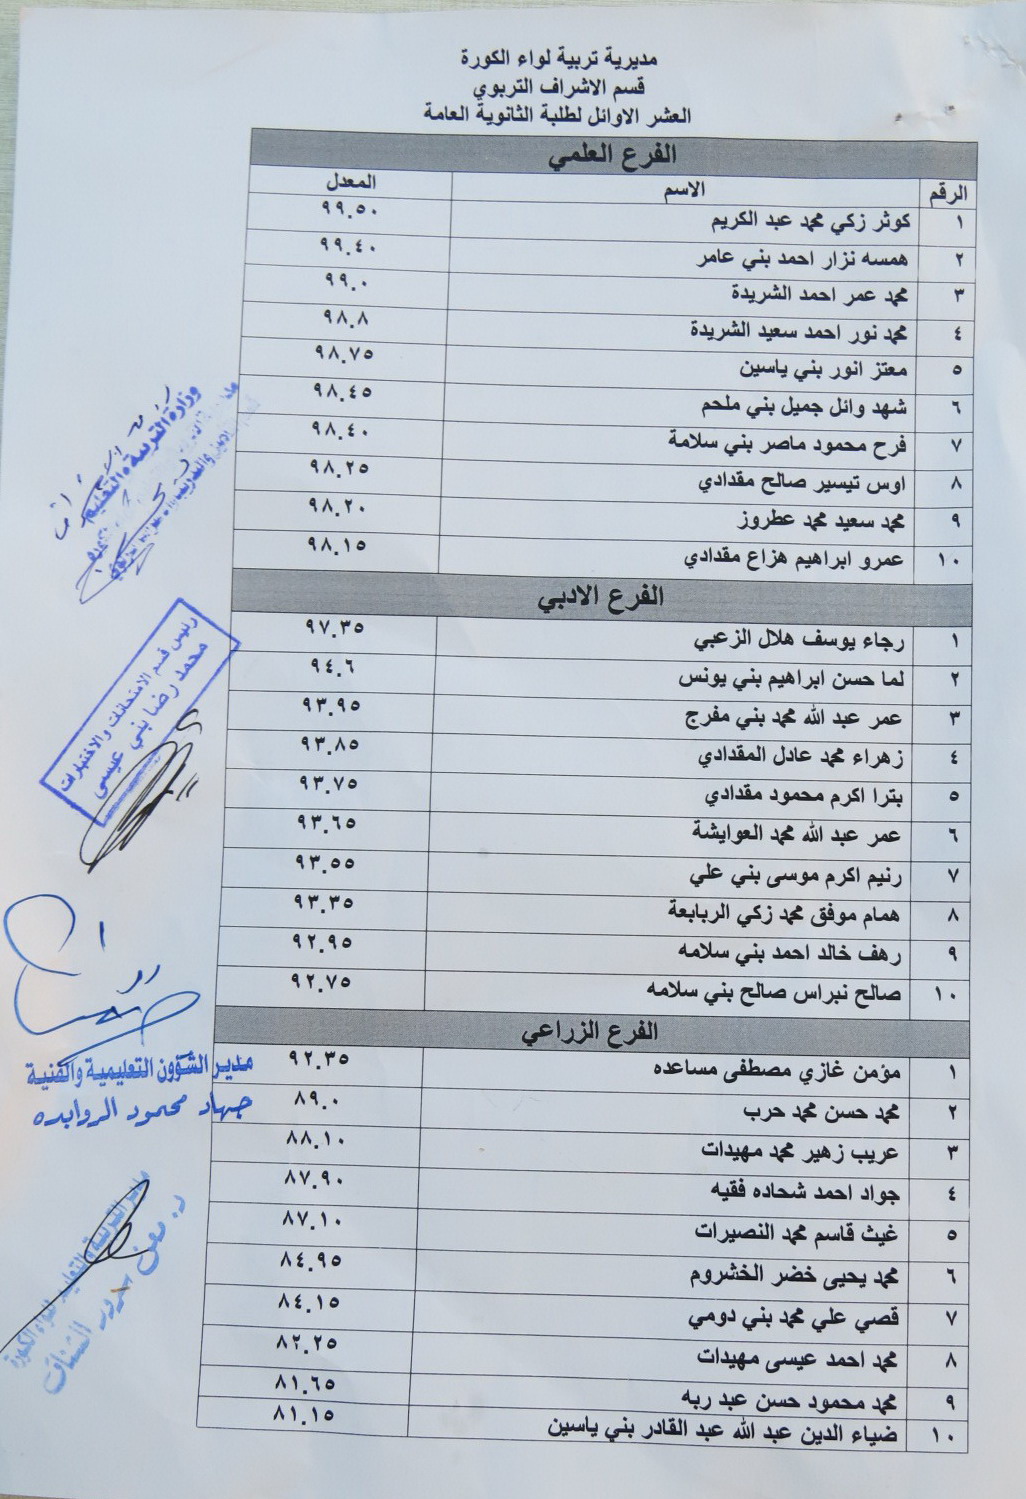 مديرية تربية لواء الكورة
قسم الاشراف التربوي
العشر الاوائل لطلبة الثانوية العامة
الفرع العلمي
الرقم الاسم المعدل
١ كوثر زكي محمد عبد الكريم ٩٩.٥٠
٢ همسه نزار احمد بني عامر ٩٩.٤٠
٣ محمد عمر احمد الشريدة ٩٩.٠
٤ محمد نور احمد سعيد الشريدة ٩٨.٨
٥ معتز انور بني ياسين ٩٨.٧٥
٦ شهد وائل جميل بني ملحم ٩٨.٤٥
٧ فرح محمود ماصر بني سلامة ٩٨.٤٠
٨ اوس تيسير صالح مقدادي ٩٨.٢٥
٩ محمد سعيد محمد عطروز ٩٨.٢٠
١٠ عمرو ابراهيم هزاع مقدادي ٩٨.١٥
الفرع الادبي
١ رجاء يوسف هلال الزعبي ٩٧.٣٥
٢ لما حسن ابراهيم بني يونس ٩٤.٦
٣ عمر عبد الله محمد بني مفرج ٩٣.٩٥
٤ زهراء محمد عادل المقدادي ٩٣.٨٥
٥ بترا اكرم محمود مقدادي ٩٣.٧٥
٦ عمر عبد الله محمد العوايشة ٩٣.٦٥
٧ رنيم اكرم موسى بني علي ٩٣.٥٥
٨ همام موفق محمد زكي الربابعة ٩٣.٣٥
٩ رهف خالد احمد بني سلامه ٩٢.٩٥
١٠ صالح نبراس صالح بني سلامه ٩٢.٧٥
الفرع الزراعي
١ مؤمن غازي مصطفى مساعده ٩٢.٣٥
٢ محمد حسن محمد حرب ٨٩.٠
٣ عريب زهير محمد مهيدات ٨٨.١٠
٤ جواد احمد شحاده فقيه ٨٧.٩٠
٥ غيث قاسم محمد النصيرات ٨٧.١٠
٦ محمد يحيى خضر الخشروم ٨٤.٩٥
٧ قصي علي محمد بني دومي ٨٤.١٥
٨ محمد احمد عيسى مهيدات ٨٢.٢٥
٩ محمد محمود حسن عبد ربه ٨١.٦٥
١٠ ضياء الدين عبد الله عبد القادر بني ياسين ٨١.١٥
وزارة التربية والتعليم
رئيس قسم الامتحانات والاختبارات
محمد رضا بني عيسى
مدير الشؤون التعليمية والفنية
جهاد محمود الروابده
مدير التربية والتعليم للواء الكورة